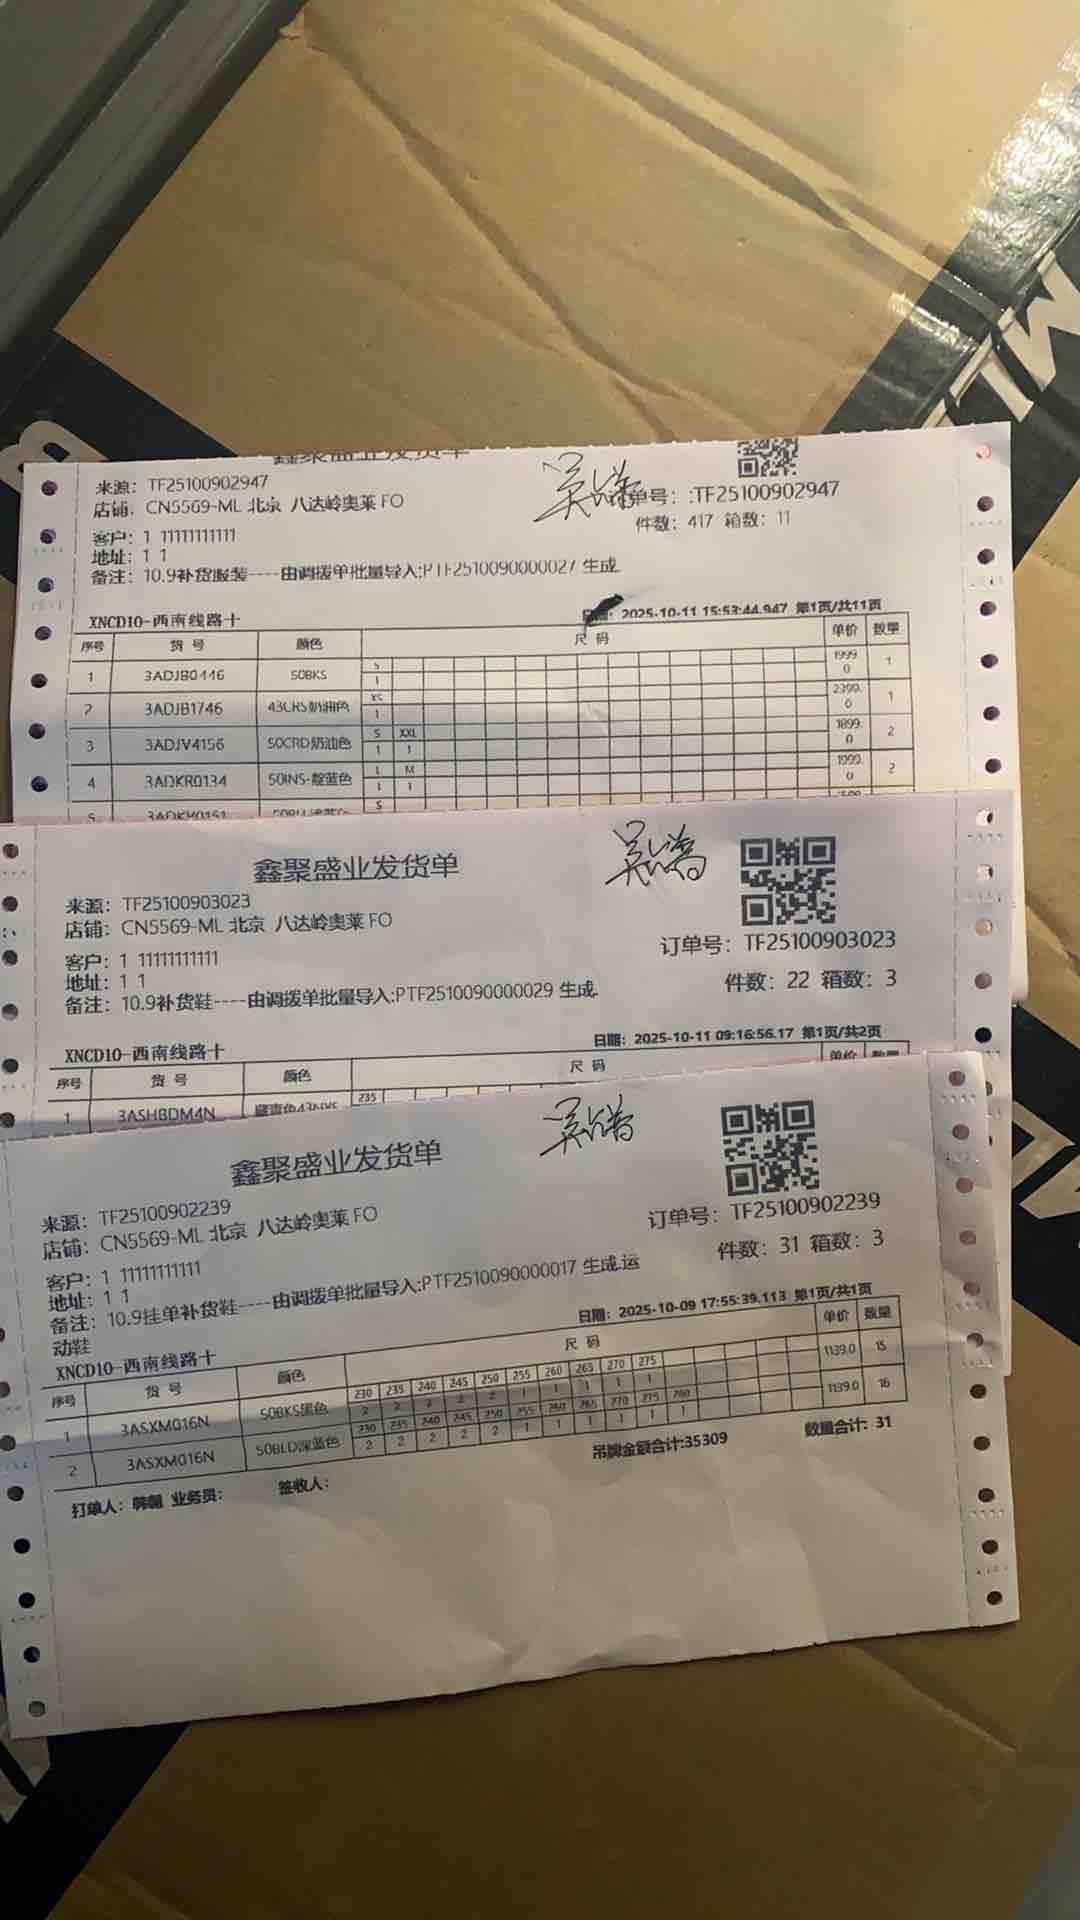 鑫聚盛业发货单
来源: TF25100902947
店铺: CN5569-ML 北京 八达岭奥莱 FO
单号: :TF25100902947
件数: 417 箱数: 11
客户: 1 11111111111
地址: 1 1
备注: 10.9补货服装----由调拨单批量导入:PTF2510090000027 生成.
XNCD10-西南线路十
2025-10-11 15:53:44.947 第1页/共11页
序号 货 号 颜色 尺 码 单价 数量
S
1 3ADJB0446 50BKS 1 1999.0 1
XS
2 3ADJB1746 43CRS奶油色 1 2399.0 1
S XXL
3 3ADJV4156 50CRD奶油色 1 1 1899.0 2
L M
4 3ADKR0134 50INS-靛蓝色 1 1 1999.0 2
5 S
鑫聚盛业发货单
来源: TF25100903023
店铺: CN5569-ML 北京 八达岭奥莱 FO
订单号: TF25100903023
件数: 22 箱数: 3
客户: 1 11111111111
地址: 1 1
备注: 10.9补货鞋----由调拨单批量导入:PTF2510090000029 生成.
XNCD10-西南线路十
日期: 2025-10-11 09:16:56.17 第1页/共2页
序号 货 号 颜色 尺 码 单价 数量
235
1 3ASHBDM4N
鑫聚盛业发货单
来源: TF25100902239
店铺: CN5569-ML 北京 八达岭奥莱 FO
订单号: TF25100902239
件数: 31 箱数: 3
客户: 1 11111111111
地址: 1 1
备注: 10.9挂单补货鞋----由调拨单批量导入:PTF2510090000017 生成.运
动鞋
XNCD10-西南线路十
日期: 2025-10-09 17:55:39.113 第1页/共1页
序号 货 号 颜色 尺 码 单价 数量
230 235 240 245 250 255 260 265 270 275
1 3ASXM016N 50BKS黑色 2 2 2 2 2 1 1 1 1 1 1139.0 15
230 235 240 245 250 255 260 265 270 275 280
2 3ASXM016N 50BLD深蓝色 2 2 2 2 2 1 1 1 1 1 1 1139.0 16
吊牌金额合计:35309 数量合计: 31
打单人: 韩 业务员: 签收人: